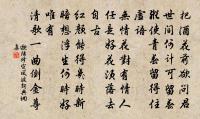 把酒花前欲問君
世間何計可留春
縱使青春留得住
虛語
無情花對有情人
任是好花須落去
自古
紅顏能得幾時新
暗想浮生何時好
唯有
清歌一曲倒金尊